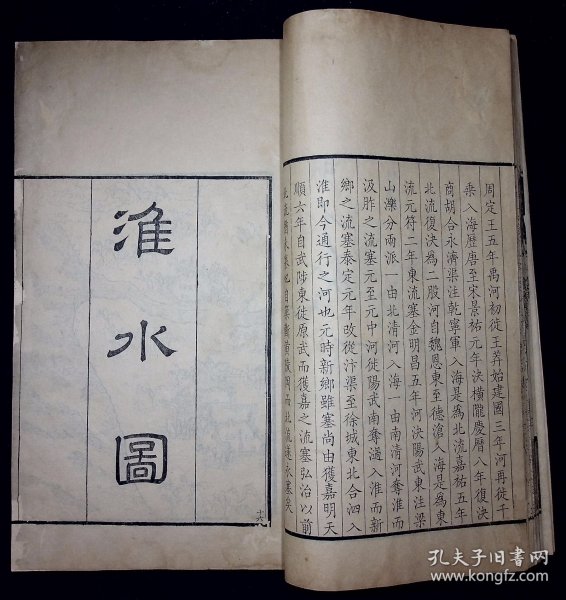 周定王五年禹河初徙王莽始建國三年河再徙千
乘入海歷唐至宋景祐元年決橫隴慶曆八年復決
商胡合永濟渠注乾寧軍入海是爲北流嘉祐五年
北流復決爲二股河自魏恩東至德滄入海是爲東
流元符二年東流塞金明昌五年河決陽武東注梁
山濼分兩派一由北清河入海一由南清河奪淮而
汲胙之流塞元至元中河徙陽武南奪渦入淮而新
鄉之流塞泰定元年改從汴渠至徐城東北合泗入
淮即今通行之河也元時新鄉雖塞尚由獲嘉明天
順六年自武陟東徙原武而獲嘉之流塞弘治以前
淮水圖
十六
孔夫子旧书网
www.kongfz.com